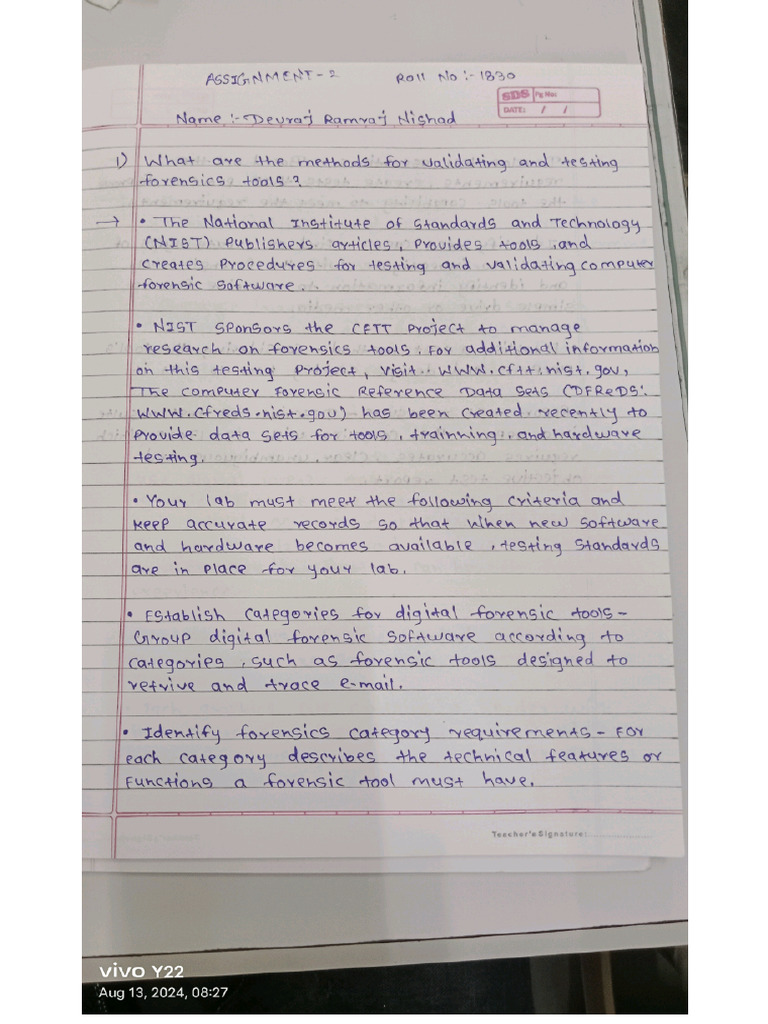 ASSIGNMENT-2 Roll No:-1830
SDS Pg No:
DATE: / /
Name:- Devraj Ramraj Nishad
1) What are the methods for validating and testing
forensics tools?
→ • The National Institute of Standards and Technology
(NIST) Publishers articles, Provides tools, and
creates Procedures for testing and validating computer
forensic Software.
• NIST Sponsors the CFTT Project to manage
research on forensics tools. For additional information
on this testing Project, visit.. WWW.cftt.nist.gov,
The Computer Forensic Reference Data Sets (DFReDS:
WWW.cfreds.nist.gov) has been created recently to
Provide data sets for tools, trainning, and hardware
testing.
• Your lab must meet the following criteria and
keep accurate records so that when new software
and hardware becomes available, testing standards
are in place for your lab.
• Establish categories for digital forensic tools-
Group digital forensic software according to
categories, such as forensic tools designed to
retrive and trace e-mail.
• Identify forensics category requirements- For
each category describes the technical features or
Functions a forensic tool must have.
Teacher's Signature:
vivo Y22
Aug 13, 2024, 08:27